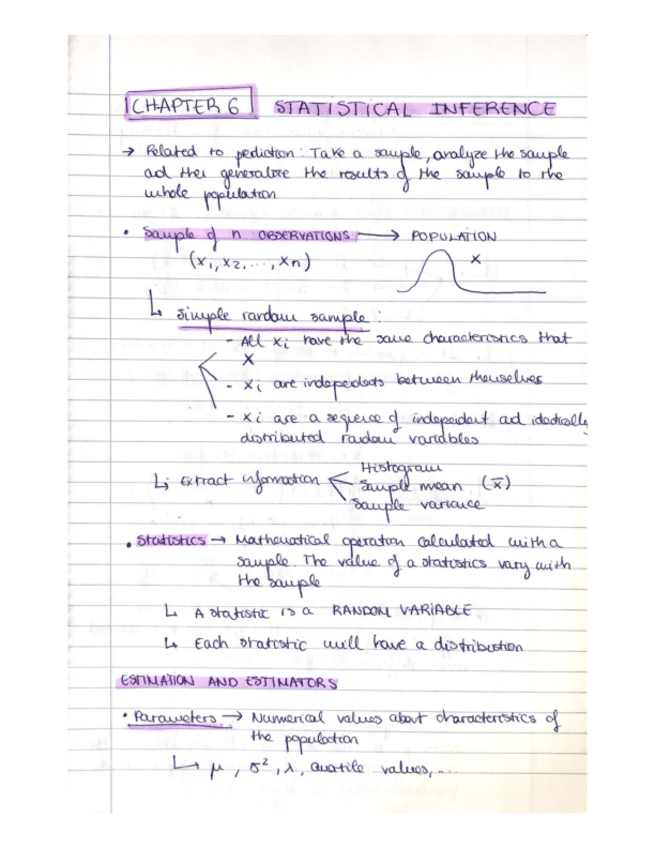 CHAPTER 6 STATISTICAL INFERENCE
→ Related to pediction: Take a sample, analyze the sample
ad then generalize the results of the sample to the
whole population
• Sample of n OBSERVATIONS → POPULATION
(x₁, x₂, ..., xn) X
↳ Simple random sample:
- All xi have the same characteristics that
X
- xi are independents between themselves
- xi are a sequence of independent ad identically
distributed random variables
Histogram
↳ Extract information Sample mean (x̄)
Sample variance
• Statistics → Mathematical operation calculated with a
sample. The value of a statistics vary with
the sample
↳ A statistic is a RANDOM VARIABLE
↳ Each statistic will have a distribution
ESTIMATION AND ESTIMATORS
• Parameters → Numerical values about characteristics of
the population
↳ μ, σ², λ, quartile values, ...